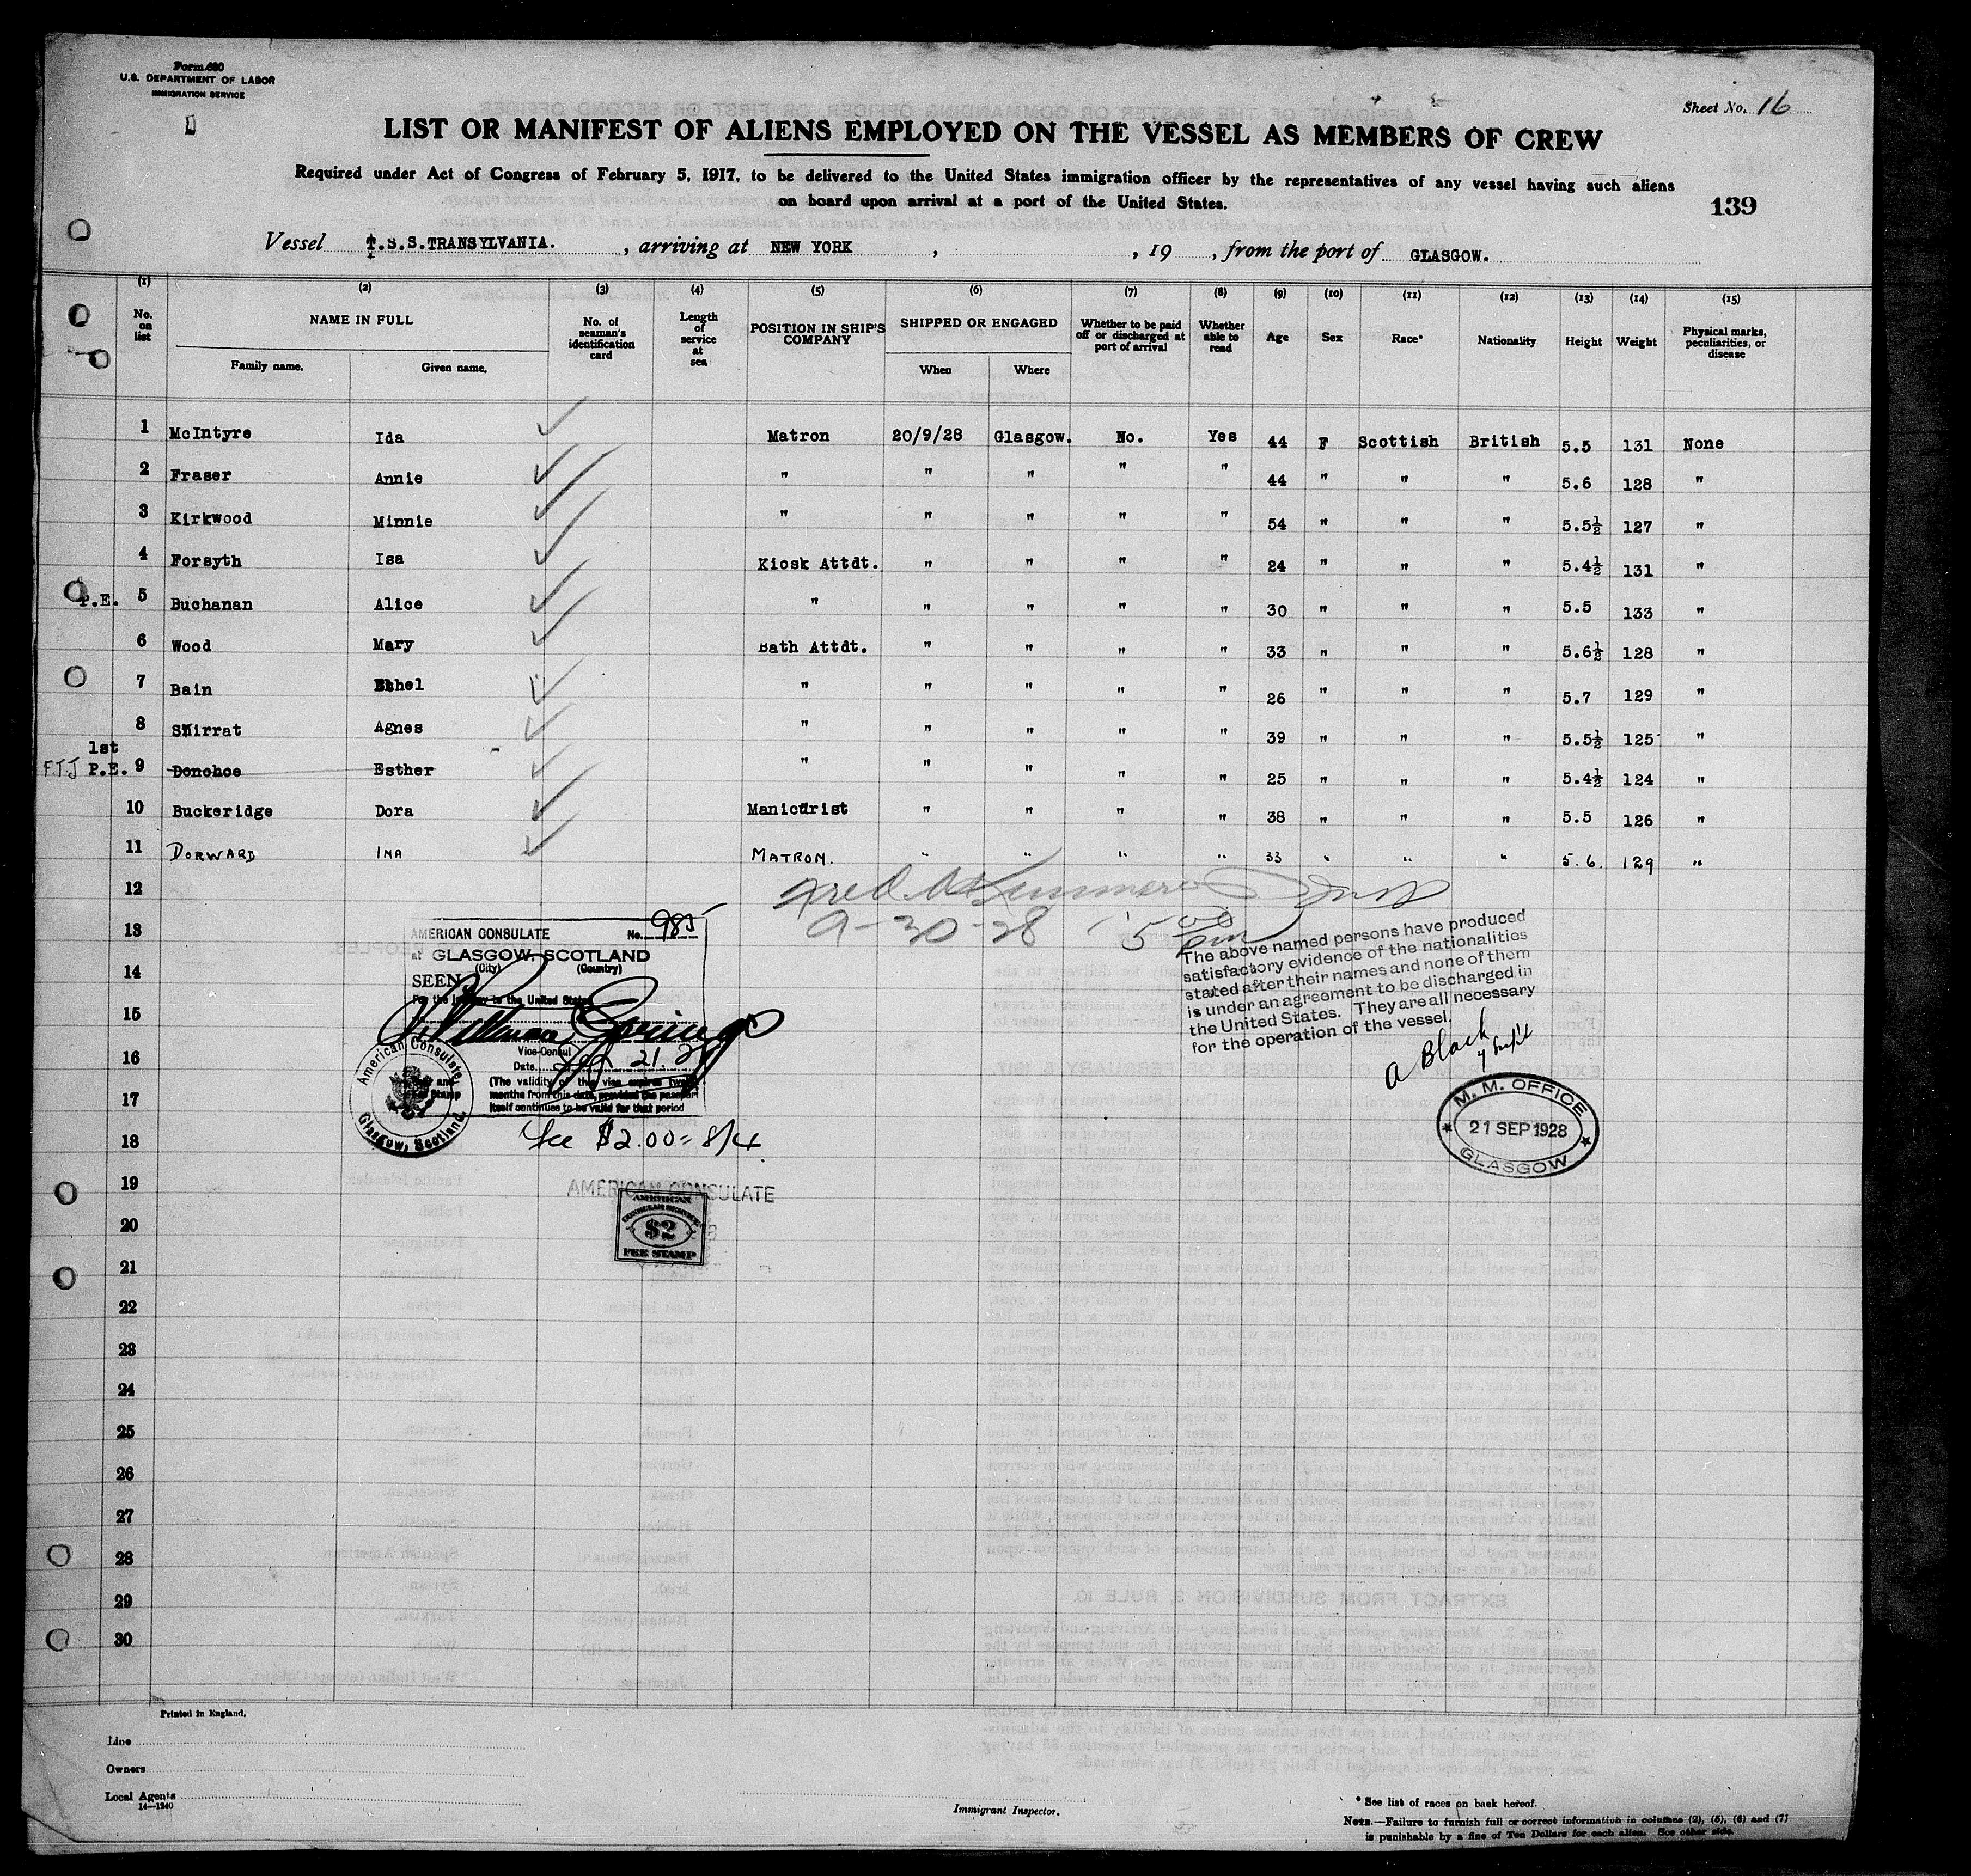 Form 680
U.S. DEPARTMENT OF LABOR
IMMIGRATION SERVICE
Sheet No. 16
LIST OR MANIFEST OF ALIENS EMPLOYED ON THE VESSEL AS MEMBERS OF CREW
Required under Act of Congress of February 5, 1917, to be delivered to the United States immigration officer by the representatives of any vessel having such aliens
on board upon arrival at a port of the United States.
139
Vessel T.S.S.TRANSYLVANIA. , arriving at NEW YORK , , 19 , from the port of GLASGOW.
(1) (2) (3) (4) (5) (6) (7) (8) (9) (10) (11) (12) (13) (14) (15)
No. on list NAME IN FULL Family name. Given name. No. of seaman's identification card Length of service at sea POSITION IN SHIP'S COMPANY SHIPPED OR ENGAGED When Where Whether to be paid off or discharged at port of arrival Whether able to read Age Sex Race* Nationality Height Weight Physical marks, peculiarities, or disease
1 McIntyre Ida Matron 20/9/28 Glasgow. No. Yes 44 F Scottish British 5.5 131 None
2 Fraser Annie " " " " " 44 " " " 5.6 128 "
3 Kirkwood Minnie " " " " " 54 " " " 5.5½ 127 "
4 Forsyth Isa Kiosk Attdt. " " " " 24 " " " 5.4½ 131 "
P.E. 5 Buchanan Alice " " " " " 30 " " " 5.5 133 "
6 Wood Mary Bath Attdt. " " " " 33 " " " 5.6½ 128 "
7 Bain Ethel " " " " " 26 " " " 5.7 129 "
8 Shirrat Agnes " " " " " 39 " " " 5.5½ 125 "
1st
FJJ P.E. 9 Donohoe Esther " " " " " 25 " " " 5.4½ 124 "
10 Buckeridge Dora Manicurist " " " " 38 " " " 5.5 126 "
11 DORWARD INA MATRON. " " " " 33 " " " 5.6. 129 "
12
13
14
15
16
17
18
19
20
21
22
23
24
25
26
27
28
29
30
9-30-28 5 00 pm
AMERICAN CONSULATE No. 985
at GLASGOW, SCOTLAND
(City) (Country)
SEEN
For the journey to the United States
Vice-Consul
Date 21.28
(The validity of this visa expires twelve
months from this date, provided the passport
itself continues to be valid for that period
American Consulate,
Glasgow, Scotland.
Fee $2.00 = 8/4
AMERICAN CONSULATE
AMERICAN
CONSULAR SERVICE
$2
FEE STAMP
The above named persons have produced
satisfactory evidence of the nationalities
stated after their names and none of them
is under an agreement to be discharged in
the United States. They are all necessary
for the operation of the vessel.
A Black
M. M. OFFICE
21 SEP 1928
GLASGOW
Printed in England.
Line
Owners
Local Agents
14—1240
Immigrant Inspector.
* See list of races on back hereof.
NOTE.—Failure to furnish full or correct information in columns (2), (5), (6) and (7)
is punishable by a fine of Ten Dollars for each alien. See other side.